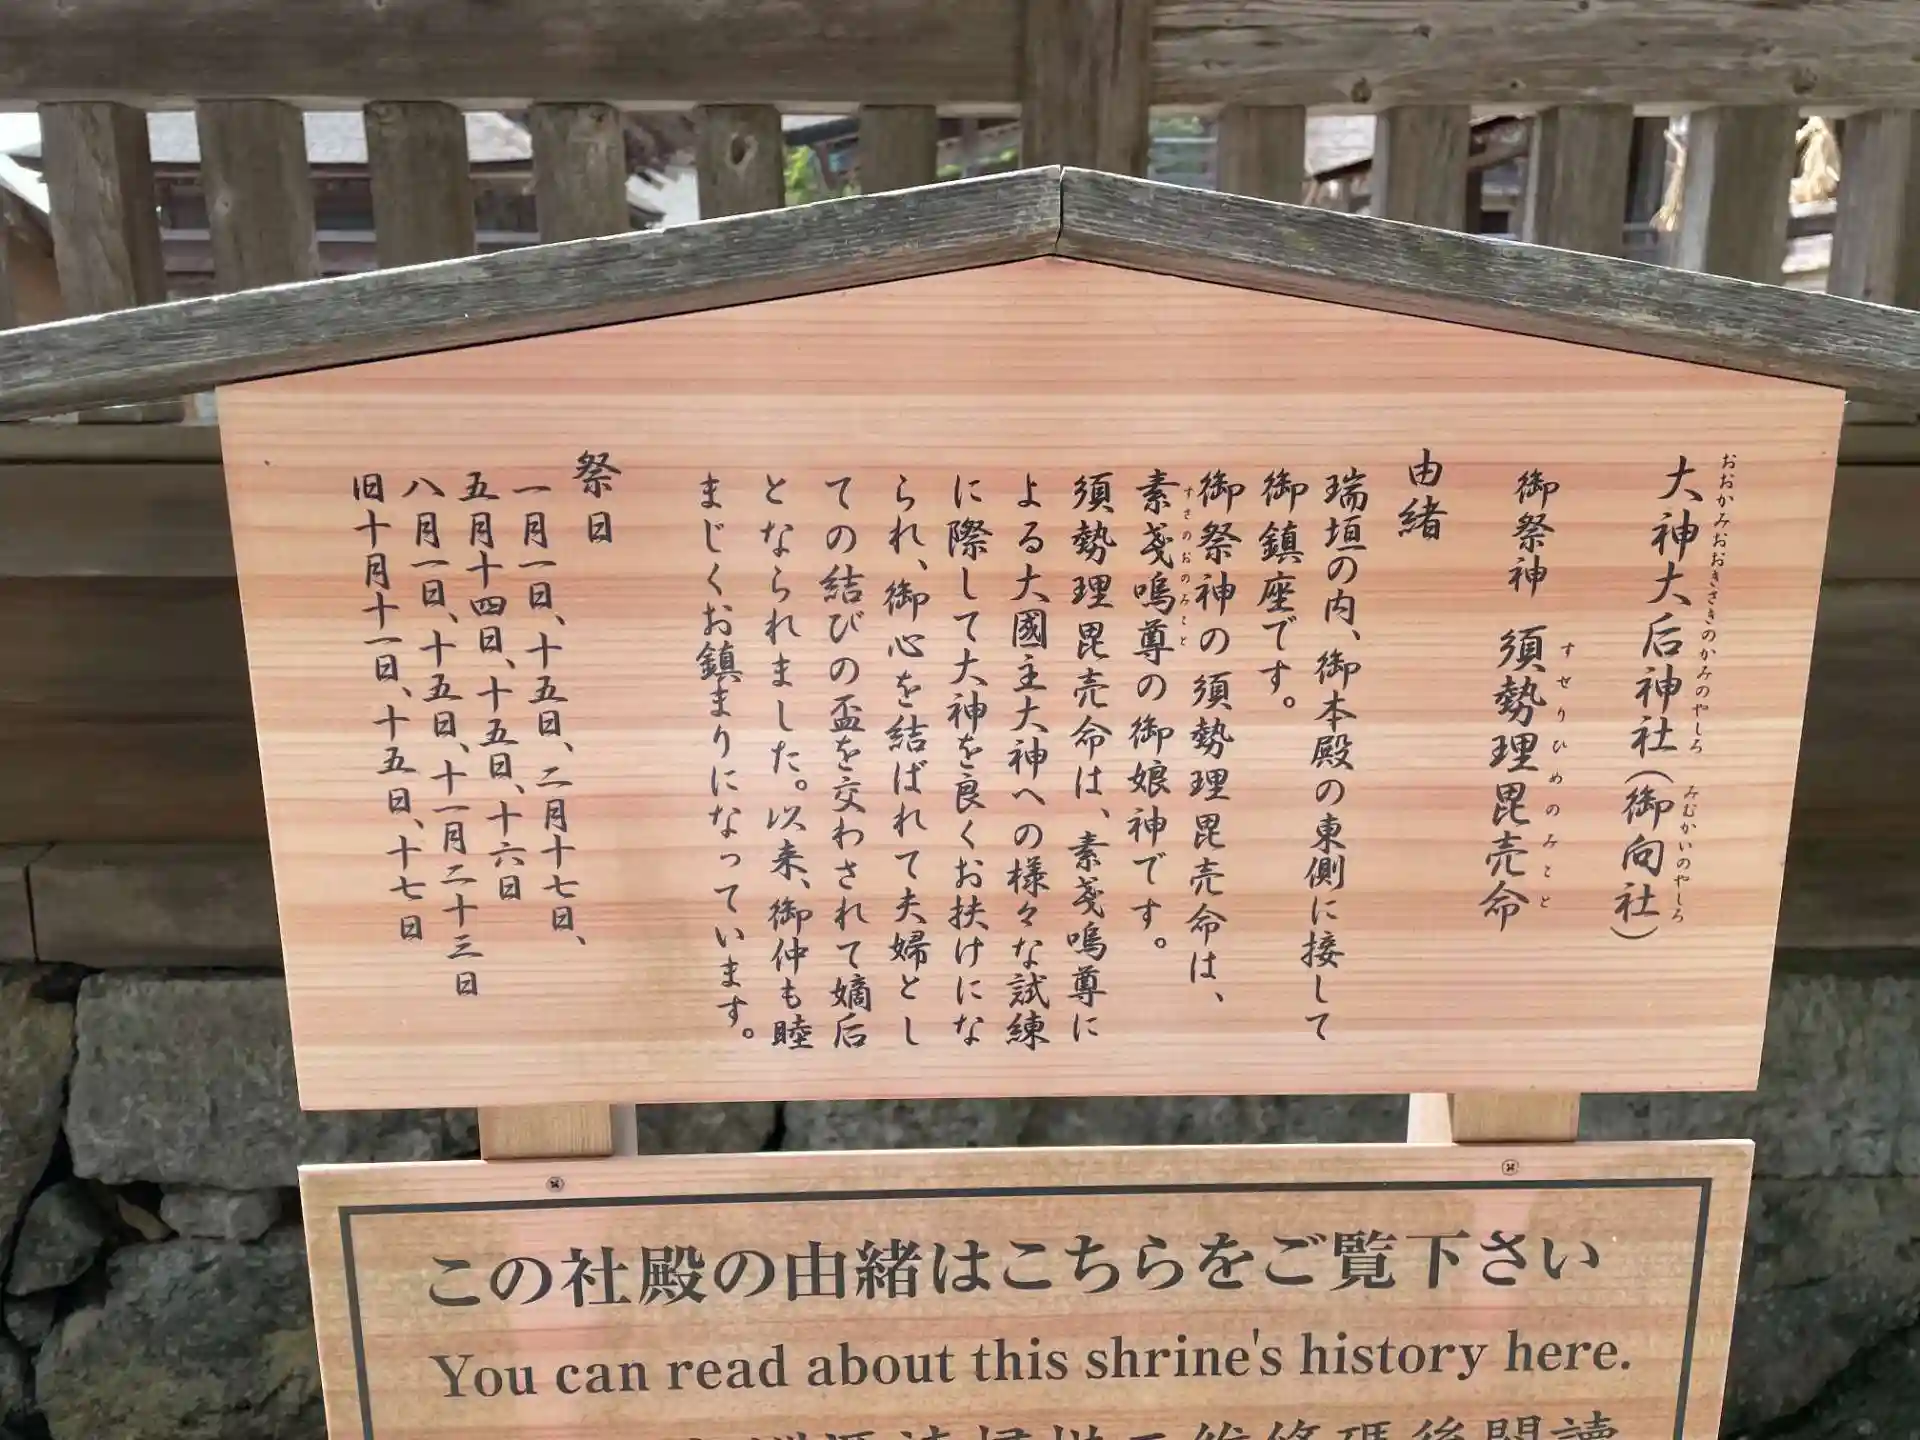 大神大后神社（御向社）
おおかみおおきさきのかみのやしろ
みむかいのやしろ
御祭神　須勢理毘売命
すせりひめのみこと
由緒
瑞垣の内、御本殿の東側に接して
御鎮座です。
御祭神の須勢理毘売命は、
素戔嗚尊の御娘神です。
すさのおのみこと
須勢理毘売命は、素戔嗚尊に
よる大國主大神への様々な試練
に際して大神を良くお扶けにな
られ、御心を結ばれて夫婦とし
ての結びの盃を交わされて嫡后
となられました。以来、御仲も睦
まじくお鎮まりになっています。
祭日
一月一日、十五日、二月十七日、
五月十四日、十五日、十六日
八月一日、十五日、十一月二十三日
旧十月十一日、十五日、十七日
この社殿の由緒はこちらをご覧下さい
You can read about this shrine's history here.